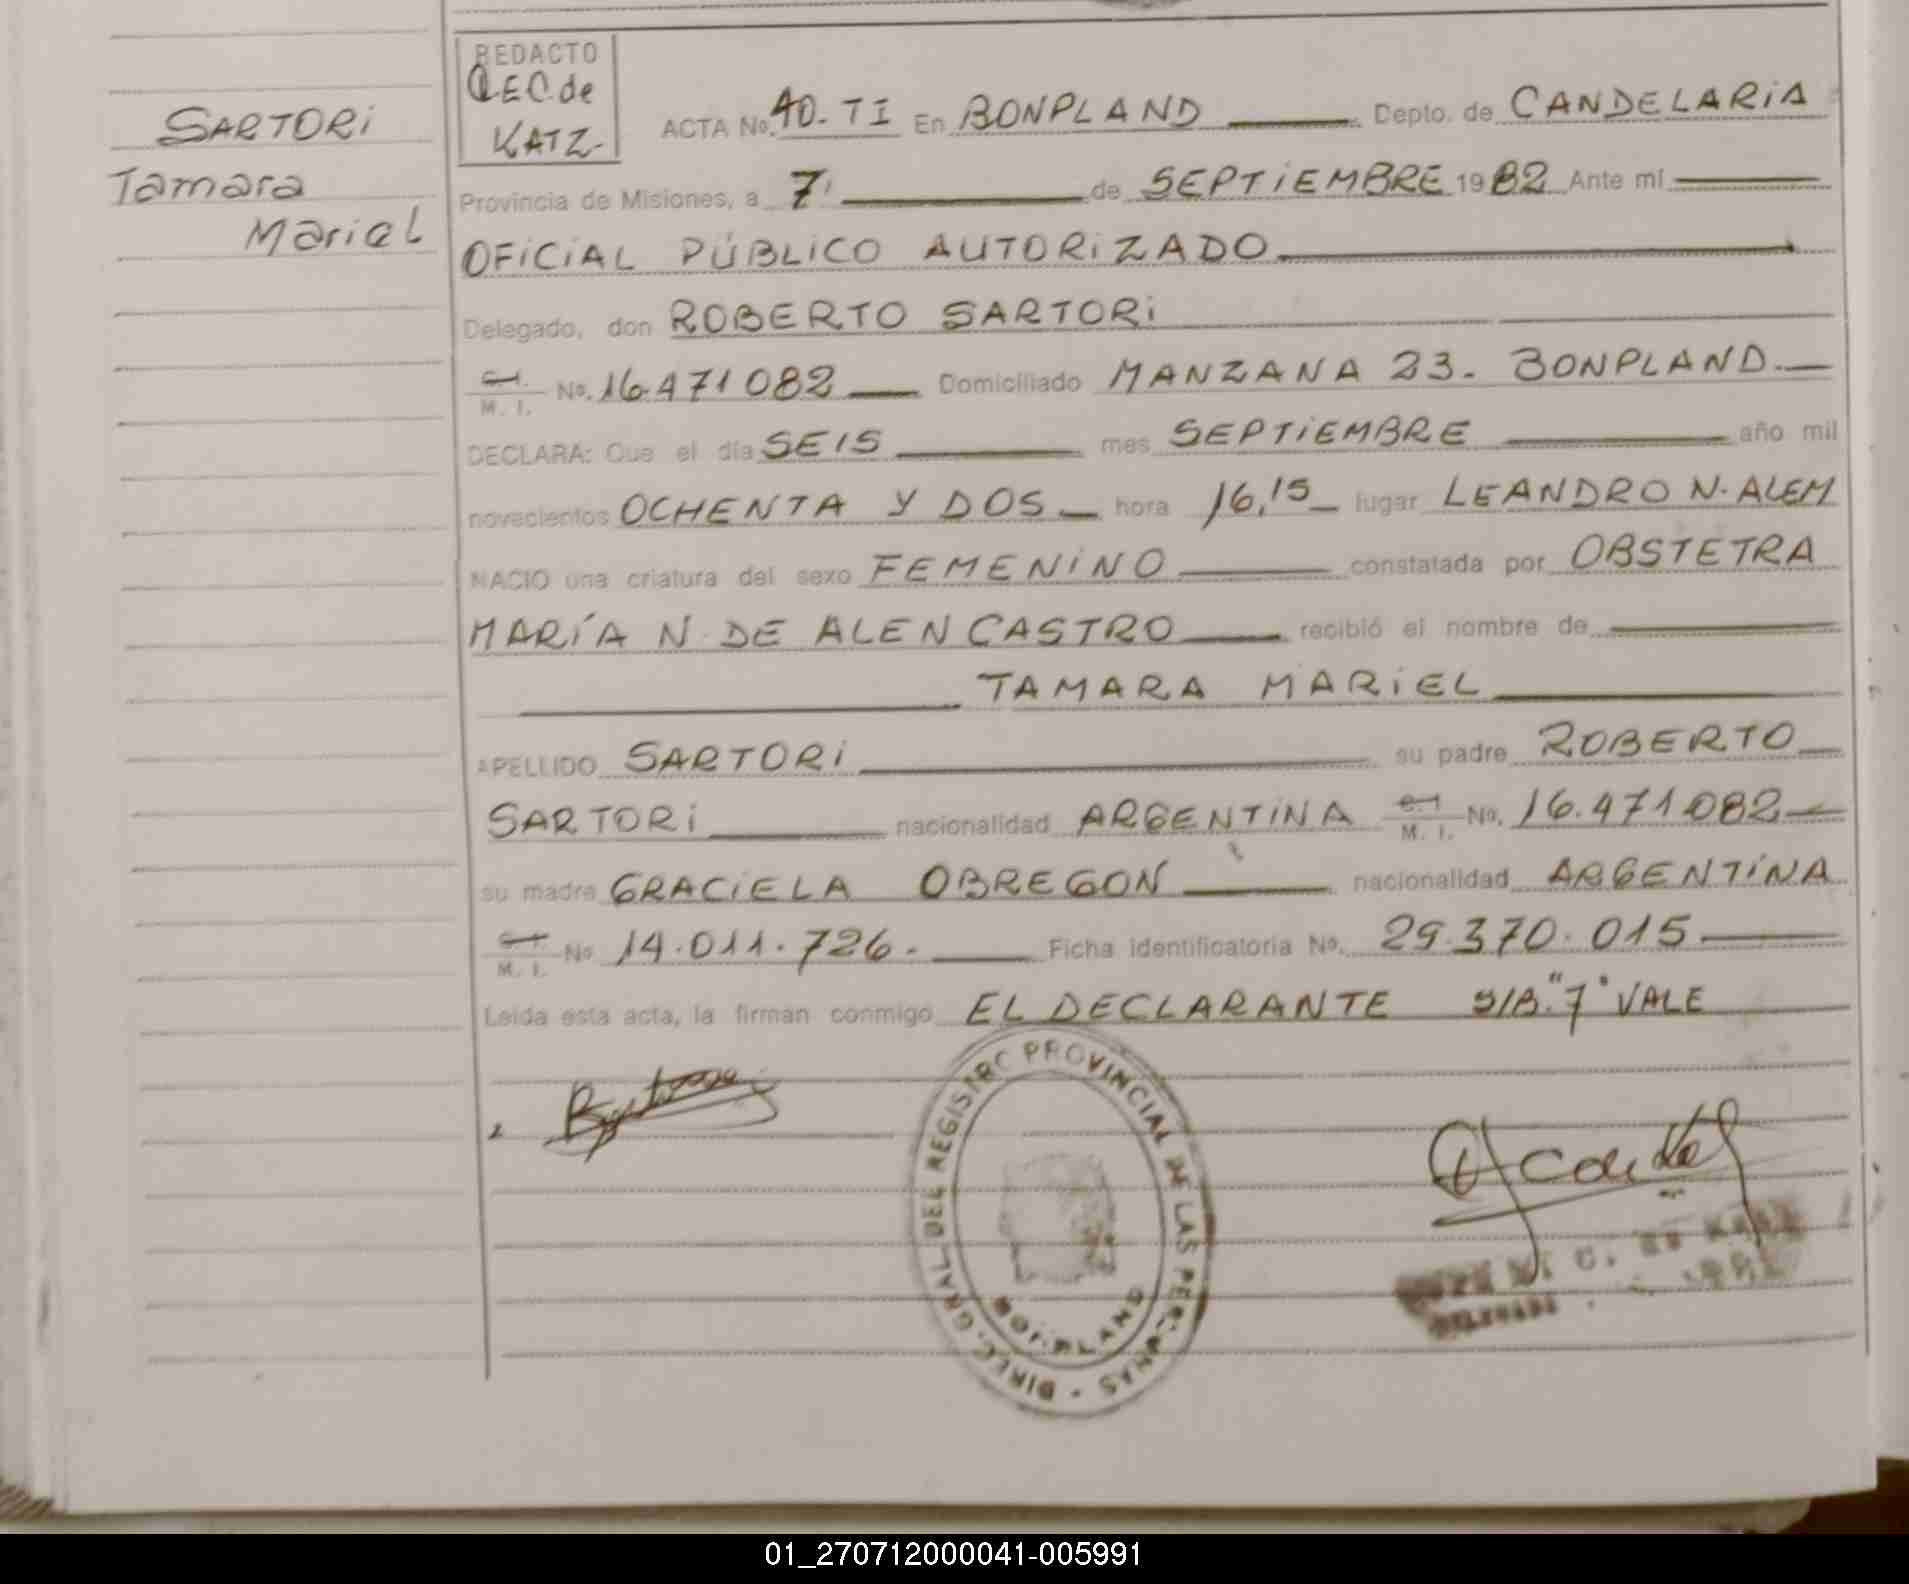 SARTORI
Tamara
Mariel
REDACTO
CEC de
KATZ-
ACTA No. 40. TI En BONPLAND Depto. de CANDELARIA
Provincia de Misiones, a 7 de SEPTIEMBRE 1982 Ante mí
OFICIAL PÚBLICO AUTORIZADO
Delegado, don ROBERTO SARTORI
C.I. M. I. No. 16.471082 Domiciliado MANZANA 23. BONPLAND.
DECLARA: Que el día SEIS mes SEPTIEMBRE año mil
novecientos OCHENTA Y DOS hora 16,15 lugar LEANDRO N. ALEM
NACIO una criatura del sexo FEMENINO constatada por OBSTETRA
MARÍA N. DE ALENCASTRO recibió el nombre de
TAMARA MARIEL
APELLIDO SARTORI su padre ROBERTO
SARTORI nacionalidad ARGENTINA C.I. M. I. No. 16.471.082
su madre GRACIELA OBREGON nacionalidad ARGENTINA
C.I. M. I. No 14.011.726. Ficha identificatoria No. 29.370.015
Leída esta acta, la firman conmigo EL DECLARANTE S/B. "7" VALE
DIREC. GRAL DEL REGISTRO PROVINCIAL DE LAS PERSONAS
BONPLAND
01_270712000041-005991